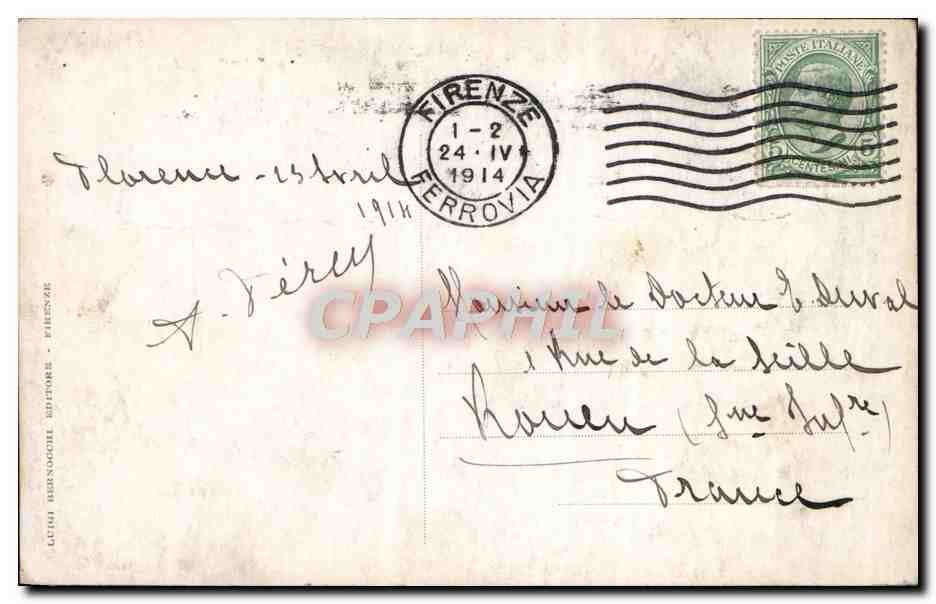 FIRENZE
1-2
24·IV
1914
FERROVIA
POSTE ITALIANE
5 5
CENTESIMI
Florence - Avril
1914
A.
CPAPHIL
Monsieur le Docteur E Duval
1 Rue de la Seille
Rouen (Sne Infre)
France
LUIGI BERNOCCHI EDITORE - FIRENZE